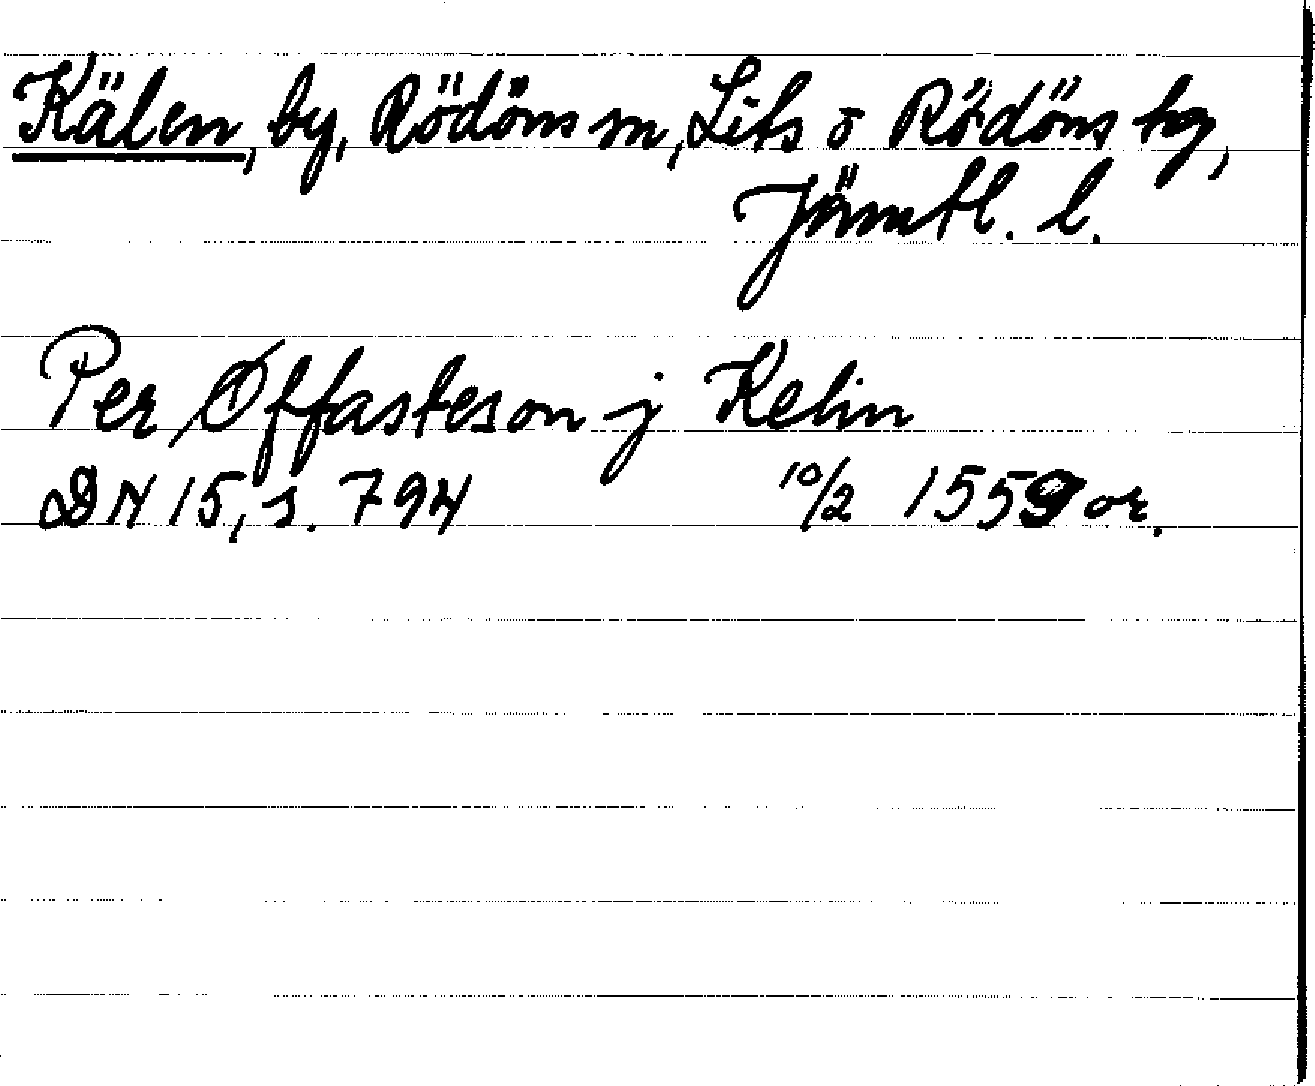 Kälen, by, Rödöns sn, Lits o Rödöns tg,
Jämtl. l.
Per Øffasteson j Kelin
DN 15, s. 794 10/2 1559 or.